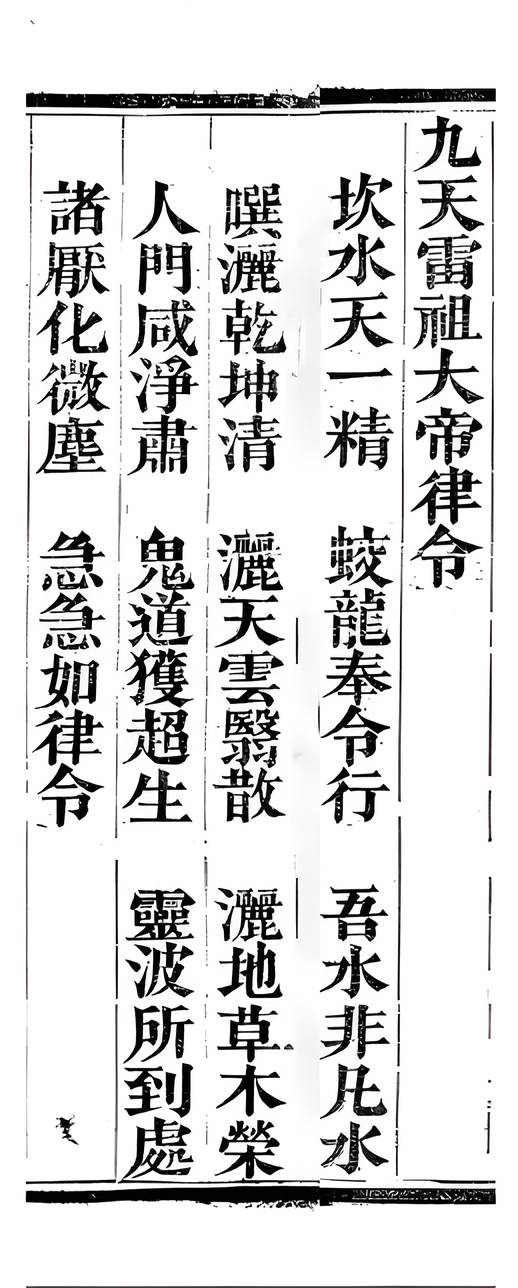 九天雷祖大帝律令
坎水天一精　蛟龍奉令行　吾水非凡水
噀灑乾坤清　灑天雲翳散　灑地草木榮
人門咸淨肅　鬼道獲超生　靈波所到處
諸厭化微塵　急急如律令